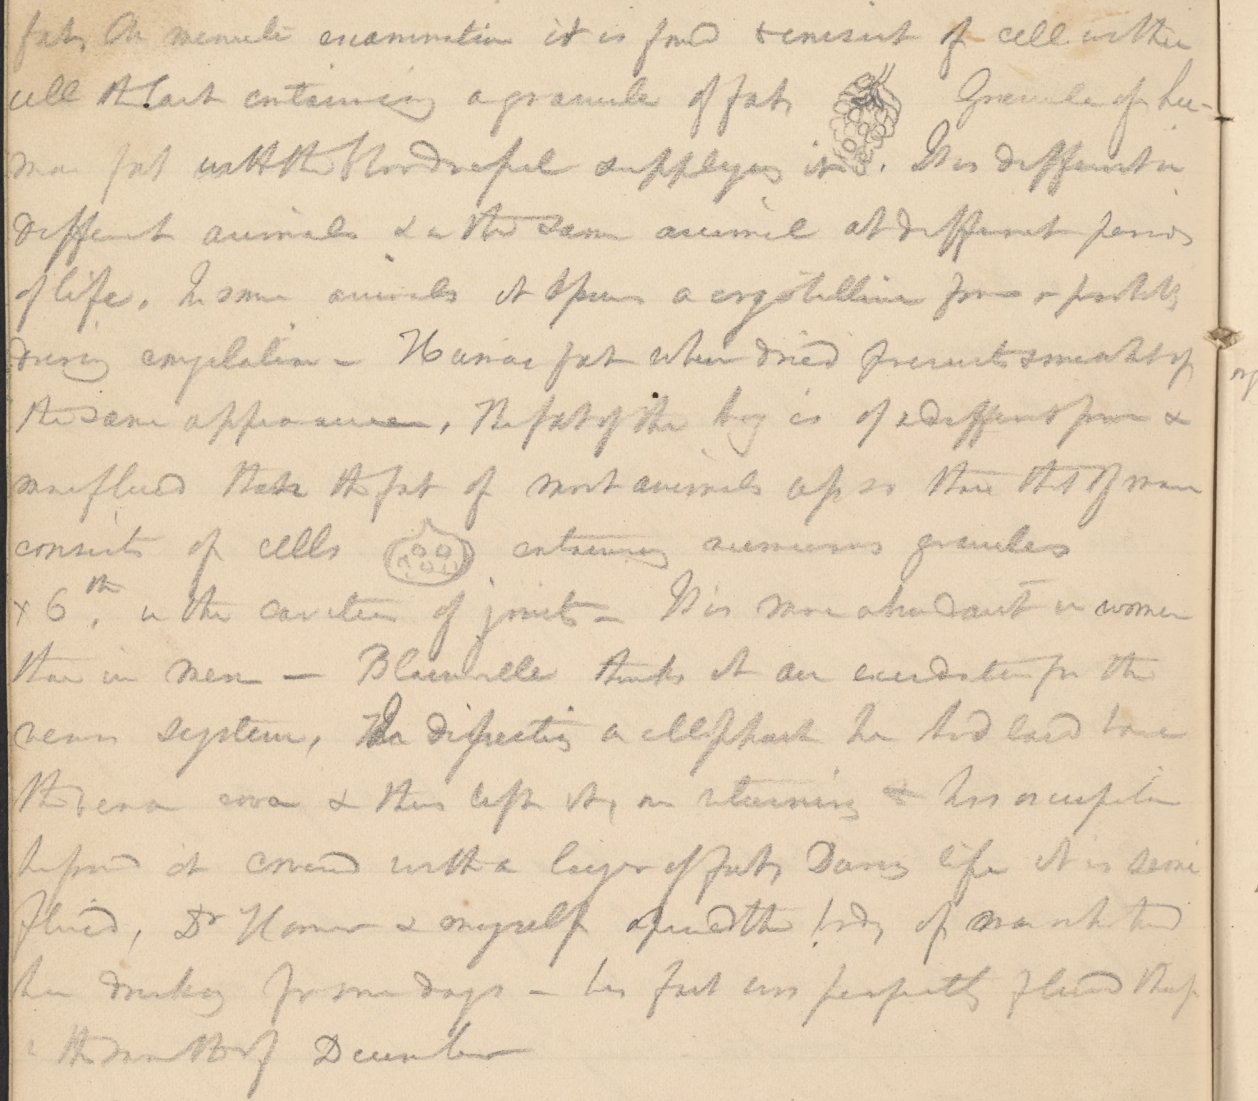 fat, On minute examination it is found to consist of cell within
cell the last containing a granule of fat, Granule of hu-
man fat with the bloodvessel supplying it. It is different in
different animals & in the same animal at different periods
of life. In some animals it assumes a crystalline form probably
during congelation - Human fat when dried presents somewhat of
the same appearance. The fat of the hog is of a different form &
more fluid than the fat of most animals also than that of man
consists of cells containing numerous granules
x 6th, in the cavities of joints - It is more abundant in women
than in men - Blainville thinks it an exudation from the
venous system, In dissecting a ellephant he had laid bare
the vena cava & then left it, on returning to his occupation
he found it covered with a layer of fat, During life it is semi
fluid, Dr Horner & myself opened the body of man who had
been drinking for some days - his fat was perfectly fluid tho
in the month of December